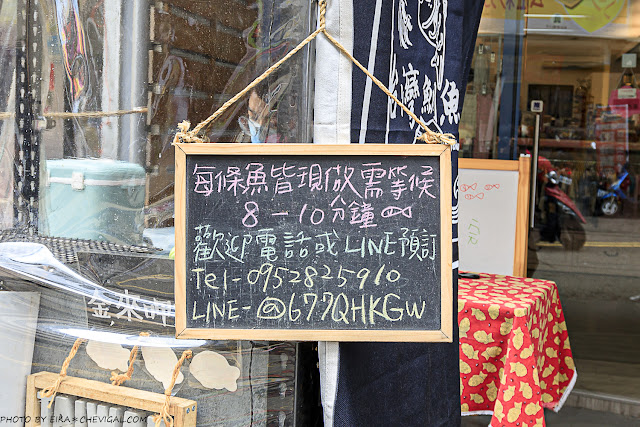 每條魚皆現做需等候
8-10分鐘
歡迎電話或LINE預訂
Tel-0952825910
LINE-@677QHKGW
PHOTO BY EIRA*CHEVIGAL.COM